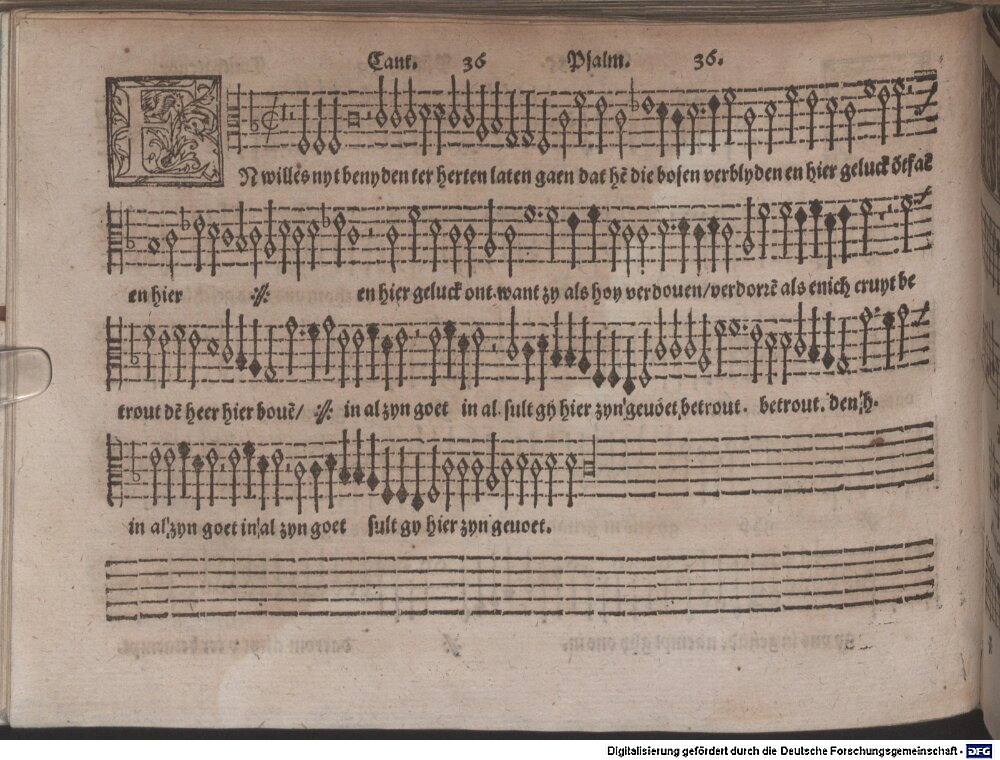 Cant. 36 Psalm. 36.
EN willēs nyt benyden ter herten laten gaen dat hē die bosen verblyden en hier geluck ōtfaē
en hier :⁄⁄: en hier geluck ont. want zy als hoy verdouen/verdorrē als enich cruyt be
trout dē heer hier bouē/ :⁄⁄: in al zyn goet in al. sult gy hier zyn geuoet, betrout. betrout. den, h.
in al, zyn goet in al zyn goet sult gy hier zyn geuoet.
Digitalisierung gefördert durch die Deutsche Forschungsgemeinschaft - DFG